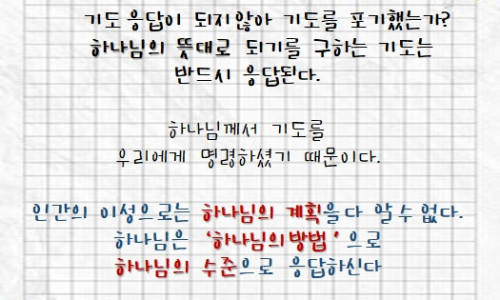 기도 응답이 되지않아 기도를 포기했는가?
하나님의 뜻대로 되기를 구하는 기도는
반드시 응답된다.
하나님께서 기도를
우리에게 명령하셨기 때문이다.
인간의 이성으로는 하나님의 계획을다 알수 없다.
하나님은 '하나님의방법' 으로
하나님의 수준으로 응답하신다